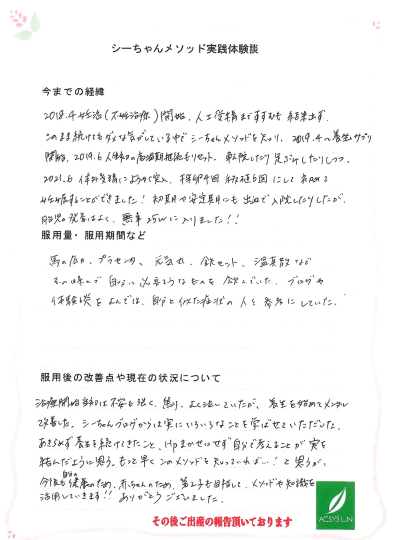 シーちゃんメソッド実践体験談
今までの経緯
2018.4 妊活(不妊治療)開始、人工受精まですすむも 結果出ず、
このまま続けてもダメな気がしている中でシーちゃんメソッドを知り、2019.4〜養生サプリ
開始、2019.6 リセット。転院したり足ぶみしたりしつつ、
2021.6 体外受精にようやく突入、採卵4回 移植6回にして初めて
妊娠することができました! 初期や安定期にも出血で入院したりしたが、
胎児の発育はよく、無事25Wに入りました!!
服用量・服用期間など
馬のプラセンタ、元気丸、鉄セット、温真散など
その時々で自分に必要そうなものを飲んでいた。ブログや
体験談をよんでは、自分と似た症状の人を参考にしていた。
服用後の改善点や現在の状況について
治療開始当初は不安も強く、焦り、よく泣いていたが、養生を始めてメンタル
改善した。シーちゃんブログからは実にいろいろなことを学ばせていただいた。
あきらめず養生を続けてきたこと、Hpまかせにせず自分で考えることが実を
結んだように思う。もっと早くこのメソッドを知っていれば…!と思うが、
今後も自身の健康のため、赤ちゃんのため、第2子も目指して、メソッドや知識を
活用していきます!! ありがとうございました。
その後ご出産の報告頂いております
ACSYSLN